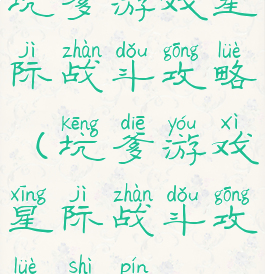 坑爹游戏星
jì zhàn dǒu gōng lüè
际战斗攻略
kēng diē yóu xì
（坑爹游戏
xīng jì zhàn dǒu gōng
星际战斗攻
lüè shì pín